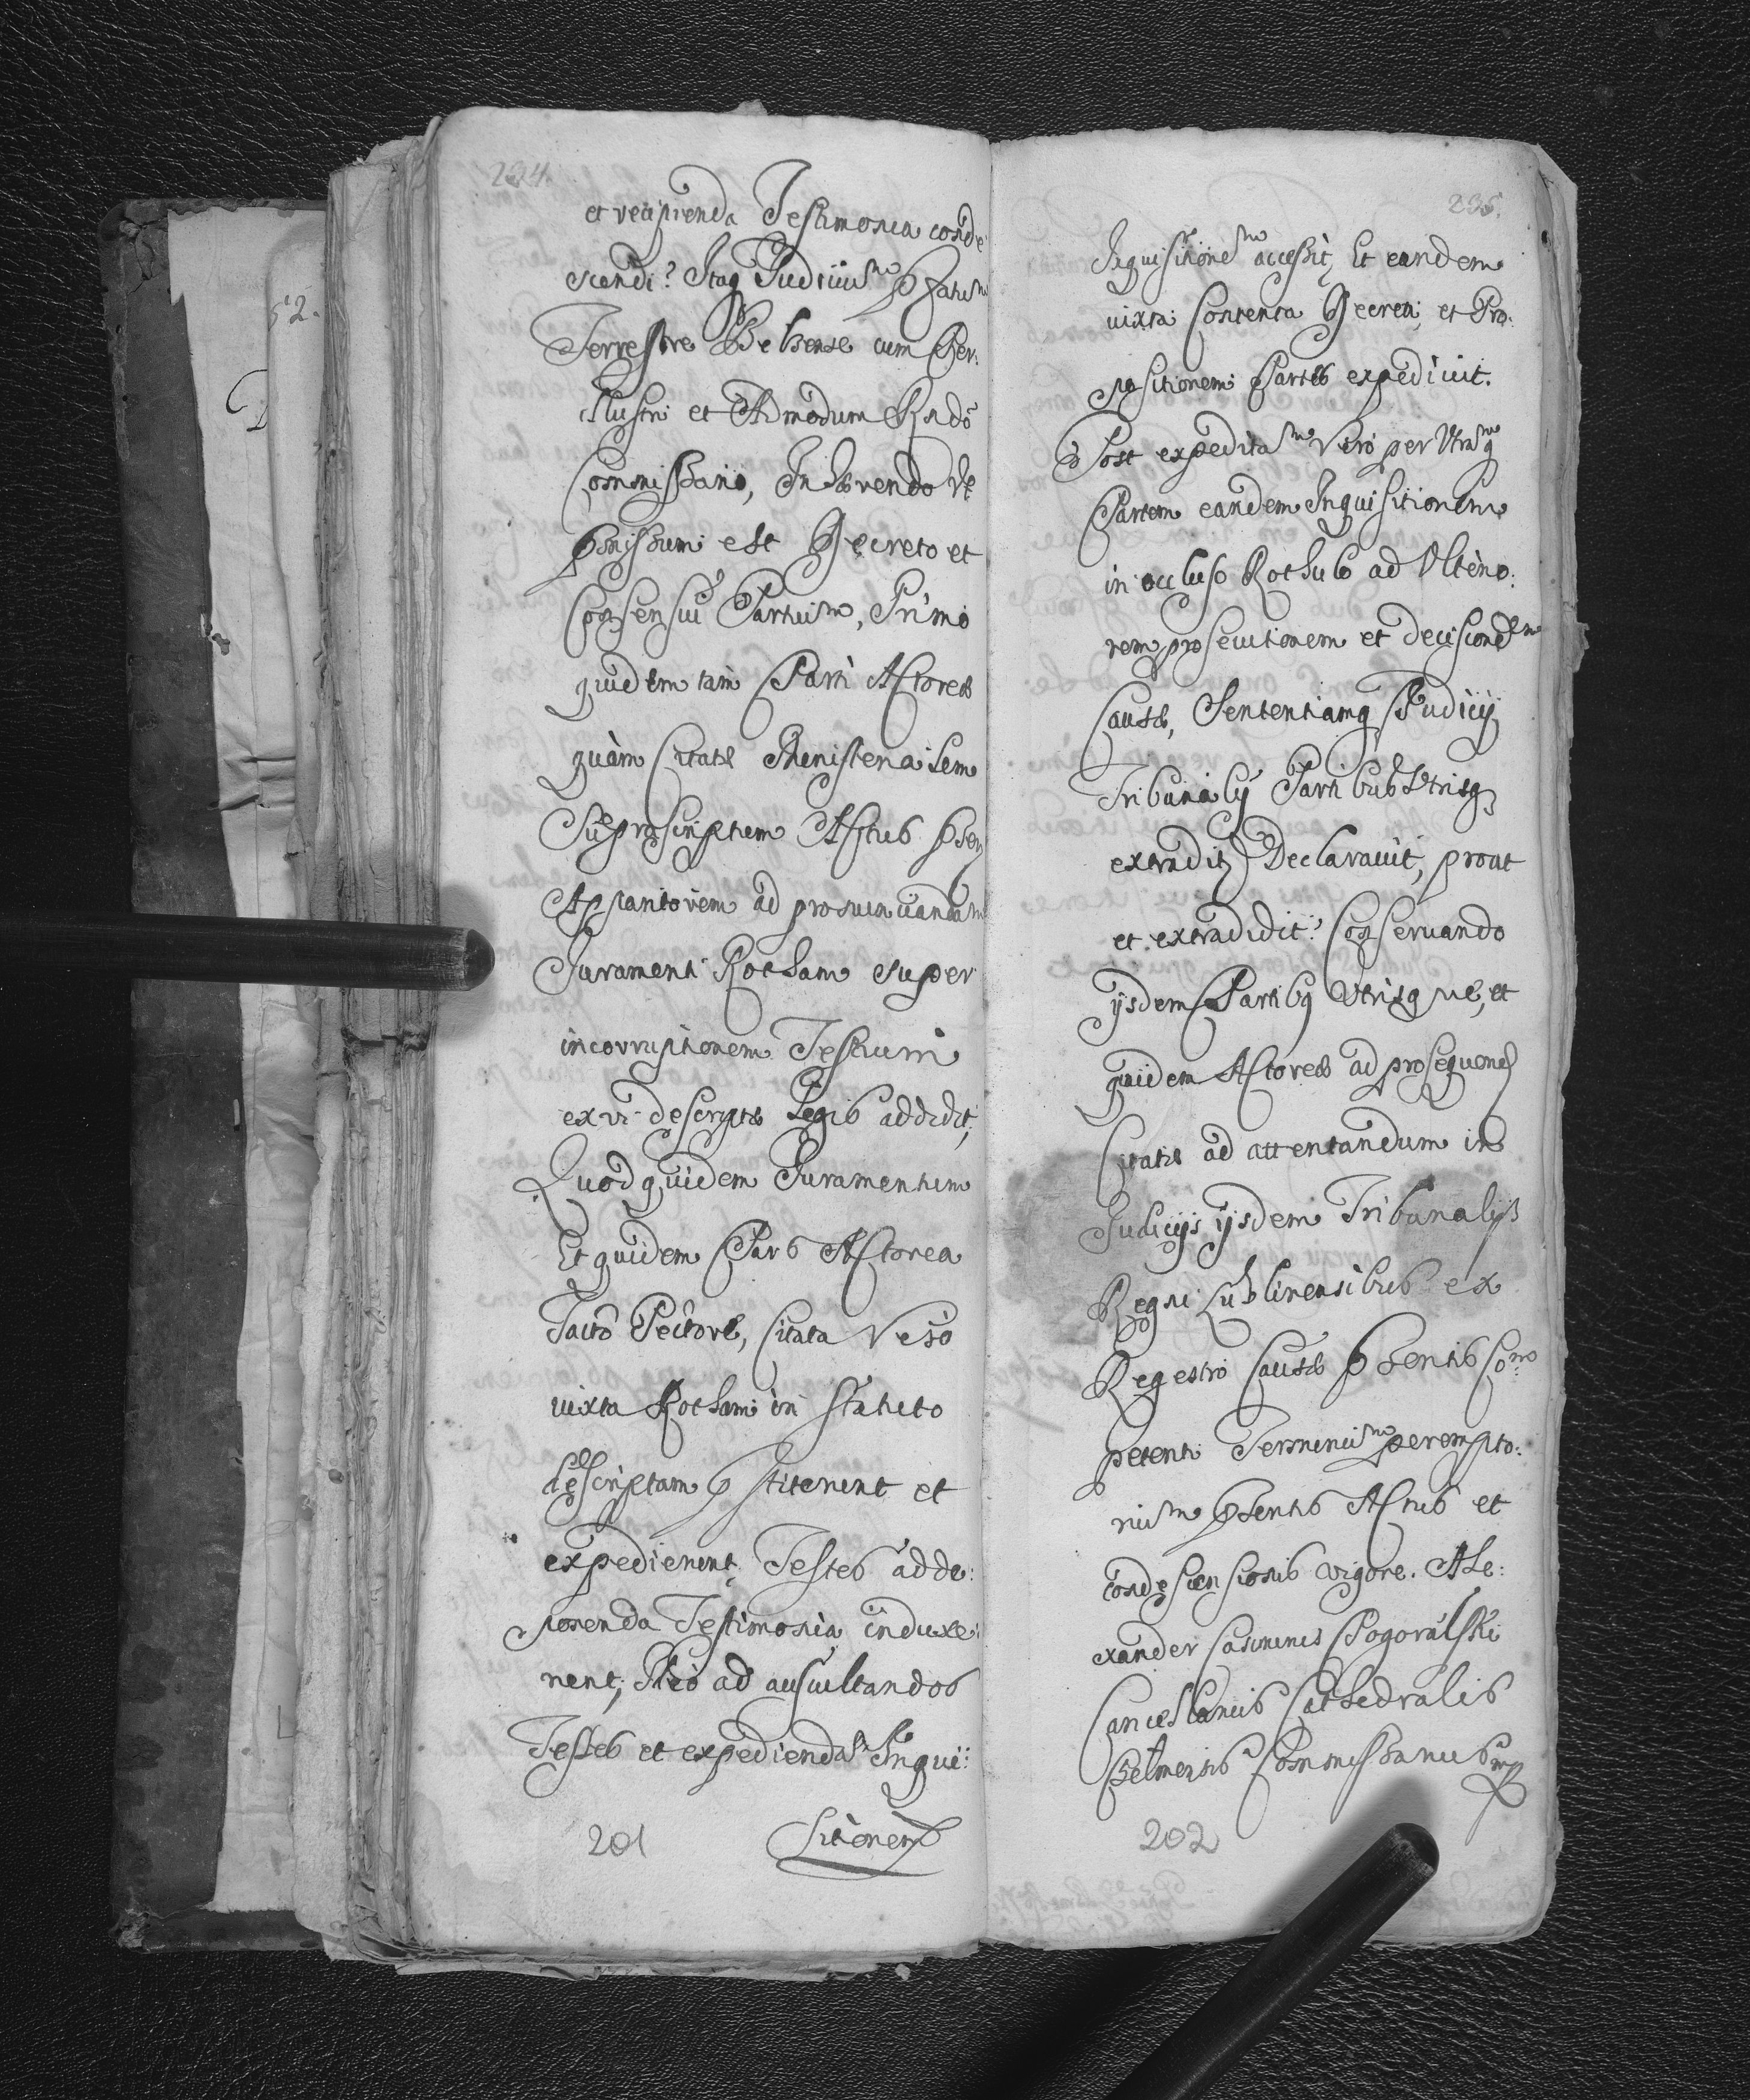 234.
et recipienda Testimonia conde
scendi? Itaq Judiciū
Terrestre Belzense cum Per:
illustri et Admodum Rndō
Commissario, Inhærendo Vt
præmissum est Decreto et
Consensui Partium, Primo
quidem tam Parti Actoreæ
quàm Citatæ Ministerialem
Suprascriptum Actus
Aptantorem ad pronunciandam
Juramenti Rotham super
incorruptionem Testium
ex vi descriptæ Legis addidit,
Quod quidem Juramentum
Et quidem Pars Actorea
Tacto Pectore, Citata Vero
iuxta Rotham in Statuto
descriptam præstiterunt et
expedierunt, Testes ad de:
ponenda Testimonia induxe:
runt, Ideò ad auscultandos
Testes et expediendam Inqui:
201 sitionem
235.
Inquisitionem accessit, Et eandem
iuxta Contenta Decreti, et Pro:
positionem Partis expedivit.
Post expeditam Verò per Utramq
Partem eandem Inquisitionem
in occluso Rothulo ad Ulterio:
rem prosecutionem et decisionem
Causæ, Sententiamq Judicij
Tribunalij Partibus Utrisq
extradit Declaravit, prout
et extradidit. Conservando
ijsdem Partibq Utrisq ne, et
quidem Actoreæ ad prosequend
Citatæ ad attentandum in
Judicijs ijsdem Tribunalijs
Regni Lublinensibus ex
Regestro Causæ præsentis Com
petenti Terminum perempto:
rium præsentis Actus et
condescensionis vigore. Ale:
xander Casimirus Pogoralski
Cancellarius Cathedralis
Chelmensis Commissarius mp
202